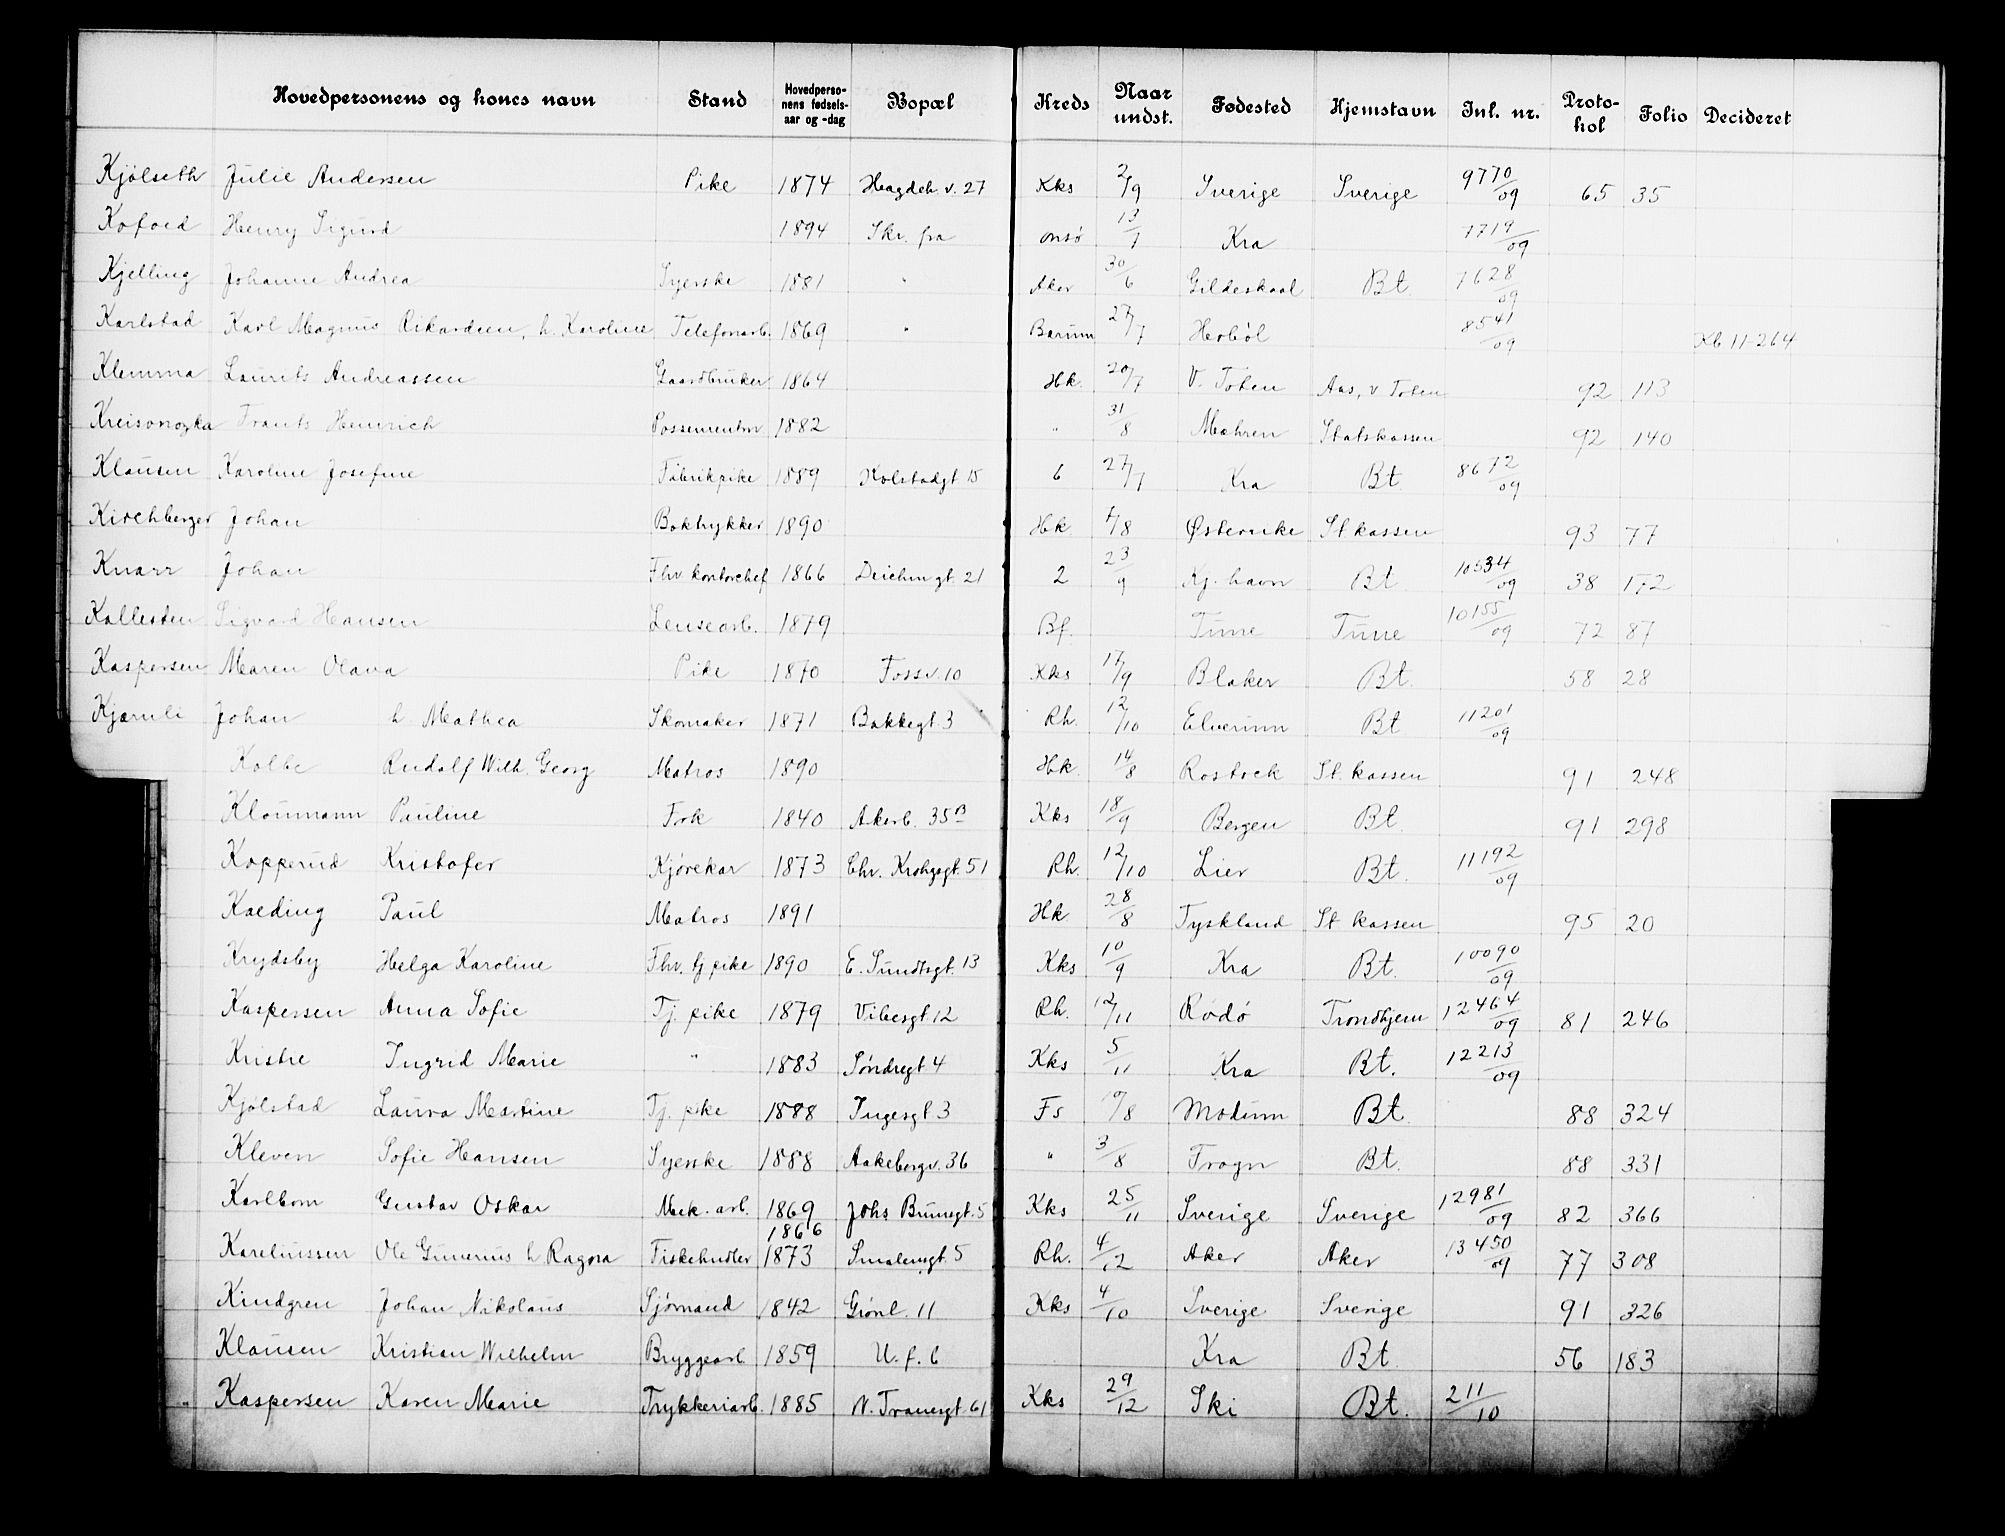 Hovedpersonens og kones navn Stand Hovedperso-nens fødsels-aar og -dag Bopæl Kreds Naar undst. Fødested Hjemstavn Inl. nr. Proto-kol Folio Decideret
Kjølseth Julie Andersen Pike 1874 Hagdeh v. 27 Kks 2/9 Sverige Sverige 9770/09 65 35
Kofoed Henry Sigurd 1894 Skr. fra Onsø 13/7 Kra 7719/09
Kjelling Johanne Andrea Syerske 1881 " Aker 30/6 Gildeskaal Bt. 7628/09
Karlstad Karl Magnus Rikardsen, h. Karoline Telefonarb. 1869 " Bærum 27/7 Hobøl 8541/09 Kb 11-264
Klemma Laurits Andreassen Gaardbruker 1864 Hk. 20/7 V. Toten Aas, V Toten 92 113
Frants Heinrich Possementm 1882 " 31/8 Mähren Statskassen 92 140
Klausen Karoline Josefine Fabrikpike 1889 Kolstadgt 15 6 27/7 Kra Bt. 8672/09
Kirchberger Johan Boktrykker 1890 Hk. /8 Østerrike St kassen 93 77
Knarr Johan Fhv kontorchef 1866 Deichm gt. 21 2 23/9 Kj. havn Bt. 10534/09 38 172
Kallesten Sigvard Hansen Lensearb. 1879 Bf. Tune Tune 10155/09 72 87
Kaspersen Maren Olava Pike 1870 Fossv. 10 Kks 17/9 Blaker Bt. 58 28
Kjærnli Johan h. Mathea Skomaker 1871 Bakkegt. 3 Rh. 12/10 Elverum Bt 11201/09
Kolbe Rudolf Wilh. Georg Matros 1890 Hk. 14/8 Rostock St. kassen 91 248
Kloumann Pauline Frk 1840 Akerb. 35 B Kks 18/9 Bergen Bt. 91 298
Kopperud Kristofer Kjørekar 1873 Chr. Krohgsgt. 51 Rh. 12/10 Lier Bt. 11192/09
Kaeding Paul Matros 1891 Hk. 28/8 Tyskland St kassen 95 20
Krydsby Helga Karoline Fhv. tj pike 1890 E. Sundtsgt. 13 Kks 10/9 Kra Bt. 10090/09
Kaspersen Anna Sofie Tj. pike 1879 Vibesgt 12 Rh. 12/11 Rødø Trondhjem 12464/09 81 246
Kristre Ingrid Marie " 1883 Søndregt 4 Kks 5/11 Kra Bt. 12213/09
Kjølstad Laura Martine Tj. pike 1888 Ingesgt 3 Fs /8 Modum Bt. 88 324
Kleven Sofie Hansen Syerske 1888 Aakebergv. 36 " 3/8 Frogn Bt. 88 331
Karlbom Gustav Oskar Mek. arb. 1869 Johs Brunsgt. 5 Kks 25/11 Sverige Sverige 12981/09 82 366
1866
Kareliussen Ole Gunerius h. Ragna Fiskehndler 1873 Smalensgt. 5 Rh. 4/12 Aker Aker 13450/09 77 308
Kindgren Johan Nikolaus Sjømand 1842 Grønl. 11 Kks 4/10 Sverige Sverige 91 326
Klausen Kristian Wilhelm Bryggearb. 1859 U. f. b Kra Bt. 56 183
Kaspersen Karen Marie Trykkeriarb. 1885 N. Fransgt. 61 Kks 29/12 Ski Bt. 211/10